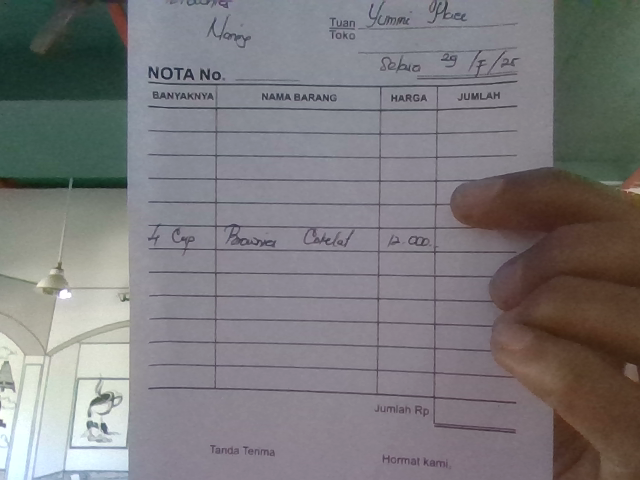 Tuan Yummi Place
Toko
NOTA No.
BANYAKNYA NAMA BARANG HARGA JUMLAH
4 Cup Brownies Cokelat 12.000
Jumlah Rp
Tanda Terima Hormat kami,